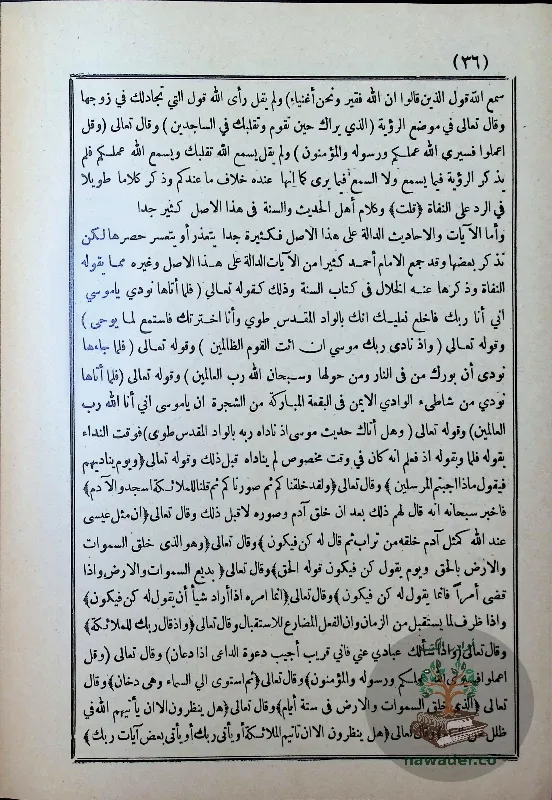 (٣٦)
سمع الله قول الذين قالوا ان الله فقير ونحن أغنياء) ولم يقل رأى الله قول التي تجادلك في زوجها
وقال تعالى في موضع الرؤية (الذي يراك حين تقوم وتقلبك في الساجدين) وقال تعالى (وقل
اعملوا فسيرى الله عملكم ورسوله والمؤمنون) ولم يقل يسمع الله تقلبك ويسمع الله عملكم فلم
يذكر الرؤية فيما يسمع ولا السمع فيما يرى كما انها عنده خلاف ما عندكم وذكر كلاما طويلا
في الرد على النفاة (قلت) وكلام أهل الحديث والسنة في هذا الاصل كثير جدا
وأما الآيات والاحاديث الدالة على هذا الاصل فكثيرة جدا يتعذر أو يتعسر حصرها لكن
نذكر بعضها وقد جمع الامام أحمد كثيرا من الآيات الدالة على هذا الاصل وغيره مما يقوله
النفاة وذكرها عنه الخلال في كتاب السنة وذلك كقوله تعالى (فلما أتاها نودي ياموسي
اني أنا ربك فاخلع نعليك انك بالواد المقدس طوي وأنا اخترتك فاستمع لما يوحى)
وقوله تعالى (واذ نادى ربك موسي ان ائت القوم الظالمين) وقوله تعالى (فلما جاءها
نودى أن بورك من فى النار ومن حولها وسبحان الله رب العالمين) وقوله تعالى (فلما أتاها
نودي من شاطىء الوادي الايمن فى البقعة المباركة من الشجرة ان ياموسى اني أنا الله رب
العالمين) وقوله تعالى (وهل أتاك حديث موسى اذ ناداه ربه بالواد المقدس طوى) فوقت النداء
بقوله فلما وبقوله اذ فعلم انه كان في وقت مخصوص لم يناداه قبل ذلك وقوله تعالى (ويوم يناديهم
فيقول ماذا اجبتم المرسلين) وقال تعالى (ولقد خلقنا كم ثم صورنا كم ثم قلنا للملائكة اسجدوا لآدم)
فاخبر سبحانه انه قال لهم ذلك بعد ان خلق آدم وصوره لا قبل ذلك وقال تعالى (ان مثل عيسى
عند الله كمثل آدم خلقه من تراب ثم قال له كن فيكون) وقال تعالى (وهو الذى خلق السموات
والارض بالحق ويوم يقول كن فيكون قوله الحق) وقال تعالى (بديع السموات والارض واذا
قضى أمراً فانما يقول له كن فيكون) وقال تعالى (انما امره اذا أراد شيأ أن يقول له كن فيكون)
واذا ظرف لما يستقبل من الزمان وان الفعل المضارع للاستقبال وقال تعالى (واذ قال ربك للملائكة)
وقال تعالى (واذا سألك عبادي عني فاني قريب أجيب دعوة الداعى اذا دعان) وقال تعالى (وقل
اعملوا فسيرى الله عملكم ورسوله والمؤمنون) وقال تعالى (ثم استوى الي السماء وهى دخان) وقال
تعالى (الذى خلق السموات والارض فى ستة أيام) وقال تعالى (هل ينظرون الا ان يأتيهم الله في
ظلل من وقال تعالى (هل ينظرون الا ان تاتيم الملائكة أو يأتى ربك أو يأتى بعض آيات ربك)
nawader.co